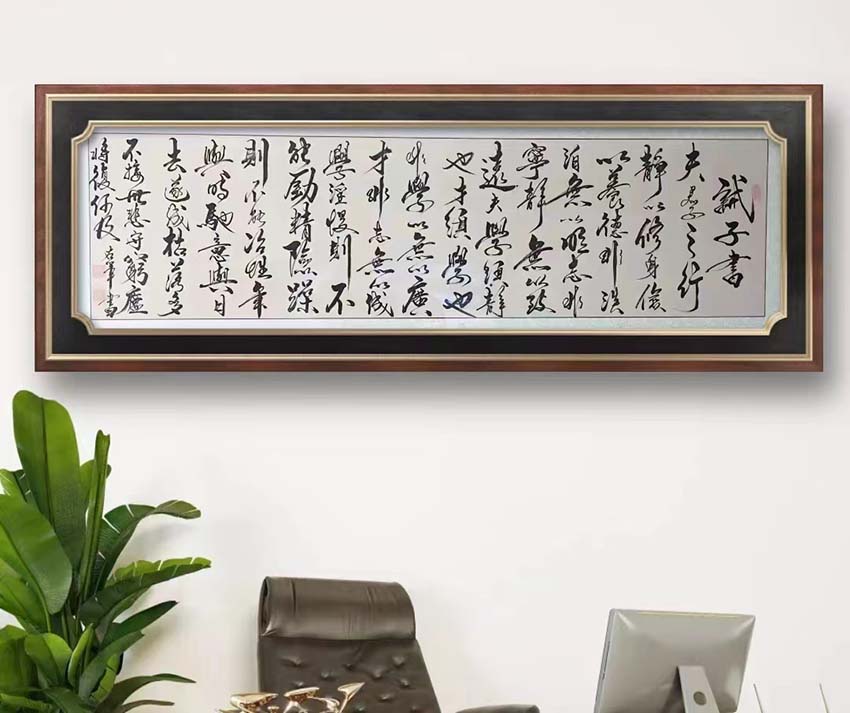 誡子書
夫君子之行
靜以修身儉
以養德非淡
泊無以明志非
寧靜無以致
遠夫學須靜
也才須學也
非學以無以廣
才非志無以成
學淫慢則不
能勵精險躁
則不能冶性年
與時馳意與日
去遂成枯落多
不接世悲守窮廬
將復何及 書